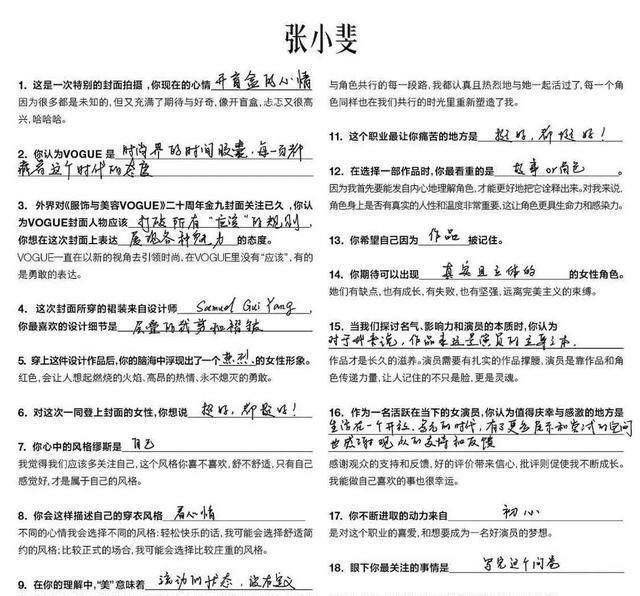 张小斐
1. 这是一次特别的封面拍摄，你现在的心情 开盲盒的心情
因为很多都是未知的，但又充满了期待与好奇，像开盲盒，忐忑又很高
兴，哈哈哈。
2. 你认为VOGUE 是 时尚界的时间胶囊，每一页都
藏着这个时代的态度
3. 外界对《服饰与美容VOGUE》二十周年金九封面关注已久，你认
为VOGUE封面人物应该 打破所有“应该”的规则，
你想在这次封面上表达 展现各种魅力 的态度。
VOGUE一直在以新的视角去引领时尚，在VOGUE里没有“应该”，有的
是勇敢的表达。
4. 这次封面所穿的裙装来自设计师 Samuel Gui Yang，
你最喜欢的设计细节是 层叠的裁剪和褶皱
5. 穿上这件设计作品后，你的脑海中浮现出了一个 热烈 的女性形象。
红色，会让人想起燃烧的火焰、高昂的热情、永不熄灭的勇敢。
6. 对这次一同登上封面的女性，你想说 挺好，都挺好！
7. 你心中的风格缪斯是 自己
我觉得我们应该多关注自己，这个风格你喜不喜欢，舒不舒适，只有自己
感觉好，才是属于自己的风格。
8. 你会这样描述自己的穿衣风格 看心情
不同的心情我会选择不同的风格：轻松快乐的话，我可能会选择舒适简
约的风格；比较正式的场合，我可能会选择比较庄重的风格。
9. 在你的理解中，“美”意味着 流动的状态，没有定义
与角色共行的每一段路，我都认真且热烈地与她一起活过了，每一个角
色同样也在我们共行的时光里重新塑造了我。
11. 这个职业最让你痛苦的地方是 挺好，都挺好！
12. 在选择一部作品时，你最看重的是 故事or角色。
因为我首先要能发自内心地理解角色，才能更好地把它诠释出来。对我来说，
角色身上是否有真实的人性和温度非常重要，这让角色更具生命力和感染力。
13. 你希望自己因为 作品 被记住。
14. 你期待可以出现 真实且立体的 的女性角色。
她们有缺点，也有成长，有失败，也有坚强，远离完美主义的束缚。
15. 当我们探讨名气、影响力和演员的本质时，你认为
对于我来说，作品永远是演员的立身之本
作品才是长久的滋养。演员需要有扎实的作品撑腰，演员是靠作品和角
色传递力量，让人记住的不只是脸，更是灵魂。
16. 作为一名活跃在当下的女演员，你认为值得庆幸与感激的地方是
生活在一个开放、多元的时代，有了更多展示和尝试的空间
也感谢观众的支持和反馈
感谢观众的支持和反馈，好的评价带来信心，批评则促使我不断成长。
我能做自己喜欢的事也很幸运。
17. 你不断进取的动力来自 初心
是对这个职业的喜爱，和想要成为一名好演员的梦想。
18. 眼下你最关注的事情是 写完这个问卷